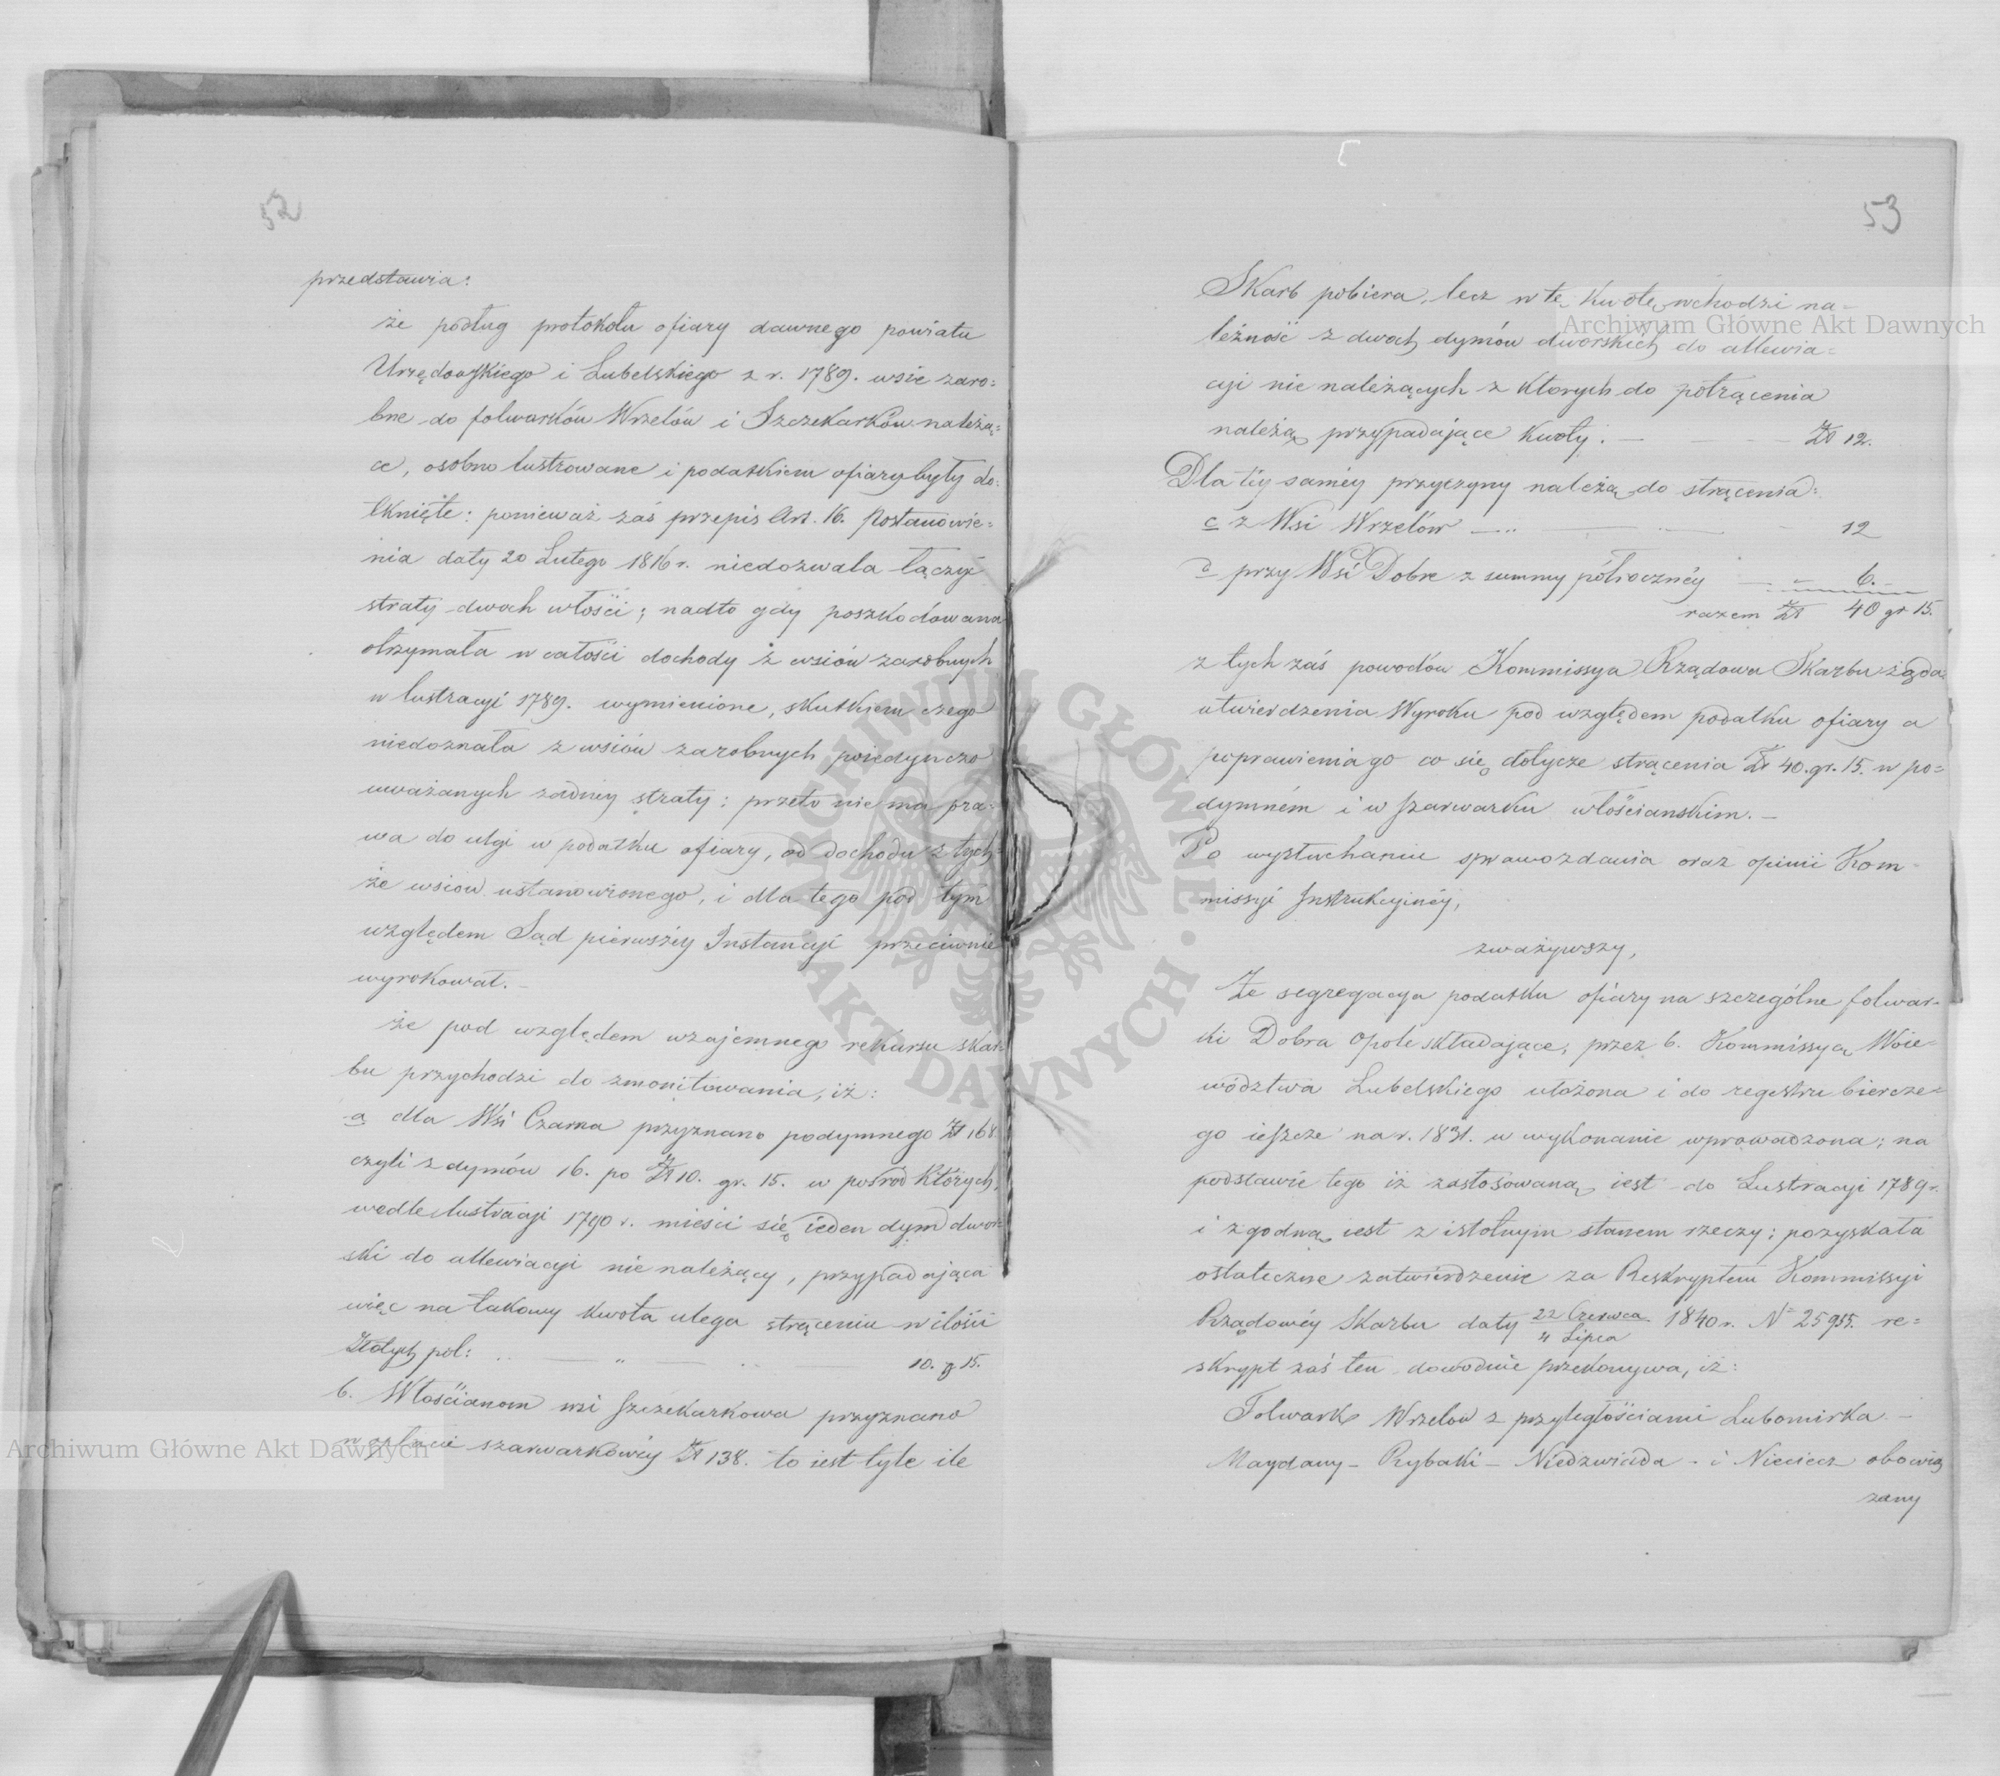 52
przedstawia:
że podług protokołu ofiary dawnego powiatu
Urzędowskiego i Lubelskiego z r. 1789. wsie zaro=
bne do folwarków Wrzelów i Szczekarków należą=
ce, osobno lustrowane i podatkiem ofiary były do=
tknięte: ponieważ zaś przepis Art. 16. Postanowie=
nia daty 20 Lutego 1816 r. niedozwala łączyć
straty dwoch włości; nadto gdy poszkodowana
otrzymała w całości dochody z wsiów zarobnych
w lustracyi 1789. wymienione, skutkiem czego
niedoznała z wsiów zarobnych poiedynczo
uważanych żadney straty; przeto nie ma pra=
wa do ulgi w podatku ofiary, od dochodu z tych=
że wsiow ustanowionego, i dla tego pod tym
względem Sąd pierwszéy Instancyi przeciwnie
wyrokował. –
że pod względem wzajemnego rekursu skar=
bu przychodzi do zmonitowania, iż:
a dla Wsi Czarna przyznano podymnego Zł 168.
czyli z dymów 16. po Zł 10. gr. 15. w pośród których,
wedle lustracyi 1790 r. mieści się ieden dym dwor=
ski do allewiacyi nie należący, przypadająca
więc na takowy kwota ulega strąceniu w ilości
Złotych pol: 10. g 15.
b. Włościanom wsi Szczekarkowa przyznano
w opłacie szarwarkowéy Zł 138. to iest tyle ile
53
Skarb pobiera, lecz w tę kwotę wchodzi na=
leżność z dwoch dymów dworskich do allewia=
cyi nie należących z ktorych do potrącenia
należą przypadające kwoty. — Zł 12.
Dla téy saméy przyczyny należą do strącenia:
c z Wsi Wrzelów — 12
d przy Wsi Dobre z summy półrocznéy — 6. –
razem Zł 40 gr 15.
z tych zaś powodów Kommissya Rządowa Skarbu żąda
utwierdzenia Wyroku pod względem podatku ofiary a
poprawienia go co się dotycze strącenia Zł 40. gr. 15. w po=
dymném i w szarwarku włościanskim. –
Po wysłuchaniu sprawozdania oraz opinii Kom=
missyi Instrukcyinéy,
zważywszy,
Że segregacya podatku ofiary na szczególne folwar=
ki Dobra Opole składające, przez b. Kommissyą Woie=
wództwa Lubelskiego ułożona i do regestru biercze=
go ieszcze na r. 1831. w wykonanie wprowadzona; na
podstawie tego iż zastosowaną iest do Lustracyi 1789 r.
i zgodną iest z istotnym stanem rzeczy; pozyskała
ostateczne zatwierdzenie za Reskryptem Kommissyi
Rządowéy Skarbu daty 22 Czerwca / 4 Lipca 1840 r. N 25955. re=
skrypt zaś ten dowodnie przekonywa, iż:
Folwark Wrzelów z przyległościami Lubomirka –
Maydany – Rybaki – Niedzwiada – i Nieciecz obowią
zany
Archiwum Główne Akt Dawnych
Archiwum Główne Akt Dawnych
ARCHIWUM GŁÓWNE · AKT DAWNYCH ·